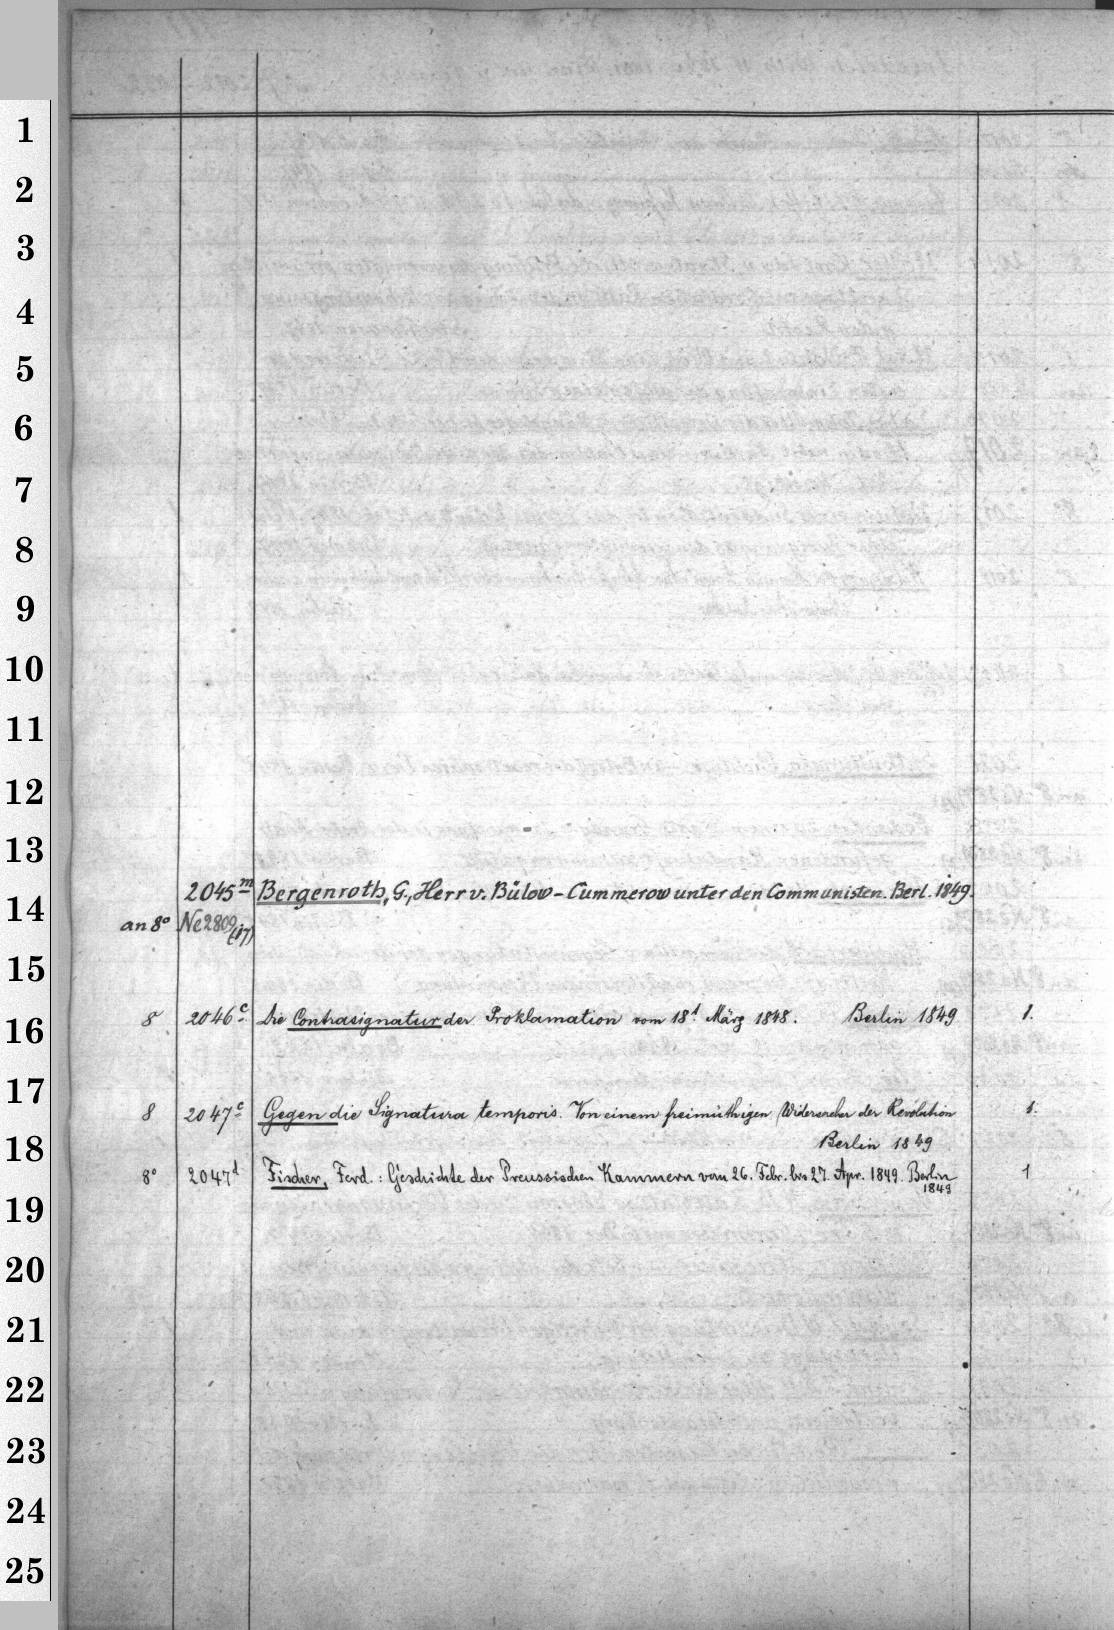 1
2
3
4
5
6
7
8
9
10
11
12
13
2045m Bergenroth, G., Herr v. Bülow-Cummerow unter den Communisten. Berl. 1849.
14
an 8° Ne2809 (17)
15
8 2046c Die Contrasignatur der Proklamation vom 18t März 1848. Berlin 1849 1.
16
17
8 2047c Gegen die Signatura temporis. Von einem freimüthigen der Revolution 1.
Berlin 1849
18
8° 2047d Fischer, Ferd.: Geschichte der Preussischen Kammern vom 26. Febr. bis 27. Apr. 1849. Berlin 1
1849
19
20
21
22
23
24
25